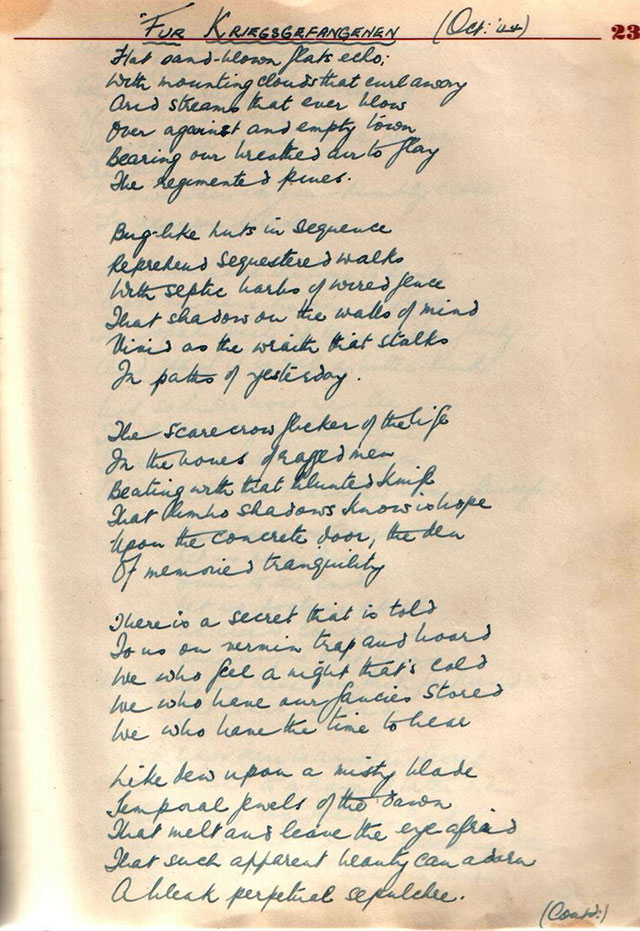 "FUR KRIEGSGEFANGENEN (Oct: '44)
23
Flat sand-blown flats echo;
With mounting clouds that curl away
Arid streams that ever blow
Over against and empty town
Bearing our breathed air to flay
The regimented pines.
Bug-like huts in sequence
Reprehend sequestered walks
With septic barbs of wired fence
That shadow on the walls of mind
Vivid as the wraith that stalks
In paths of yesterday.
The scarecrow flicker of the life
In the bones of ragged men
Beating with that blunted knife
That limbo shadows know is hope
Upon the concrete door, the den
Of memoried tranquility
There is a secret that is told
To us on vermin trap and board
We who feel a night that's cold
We who have our fancies stored
We who have the time to hear
Like dew upon a misty blade
Temporal jewels of the dawn
That melt and leave the eye afraid
That such apparent beauty can adorn
A bleak perpetual sepulchre.
(Contd:)